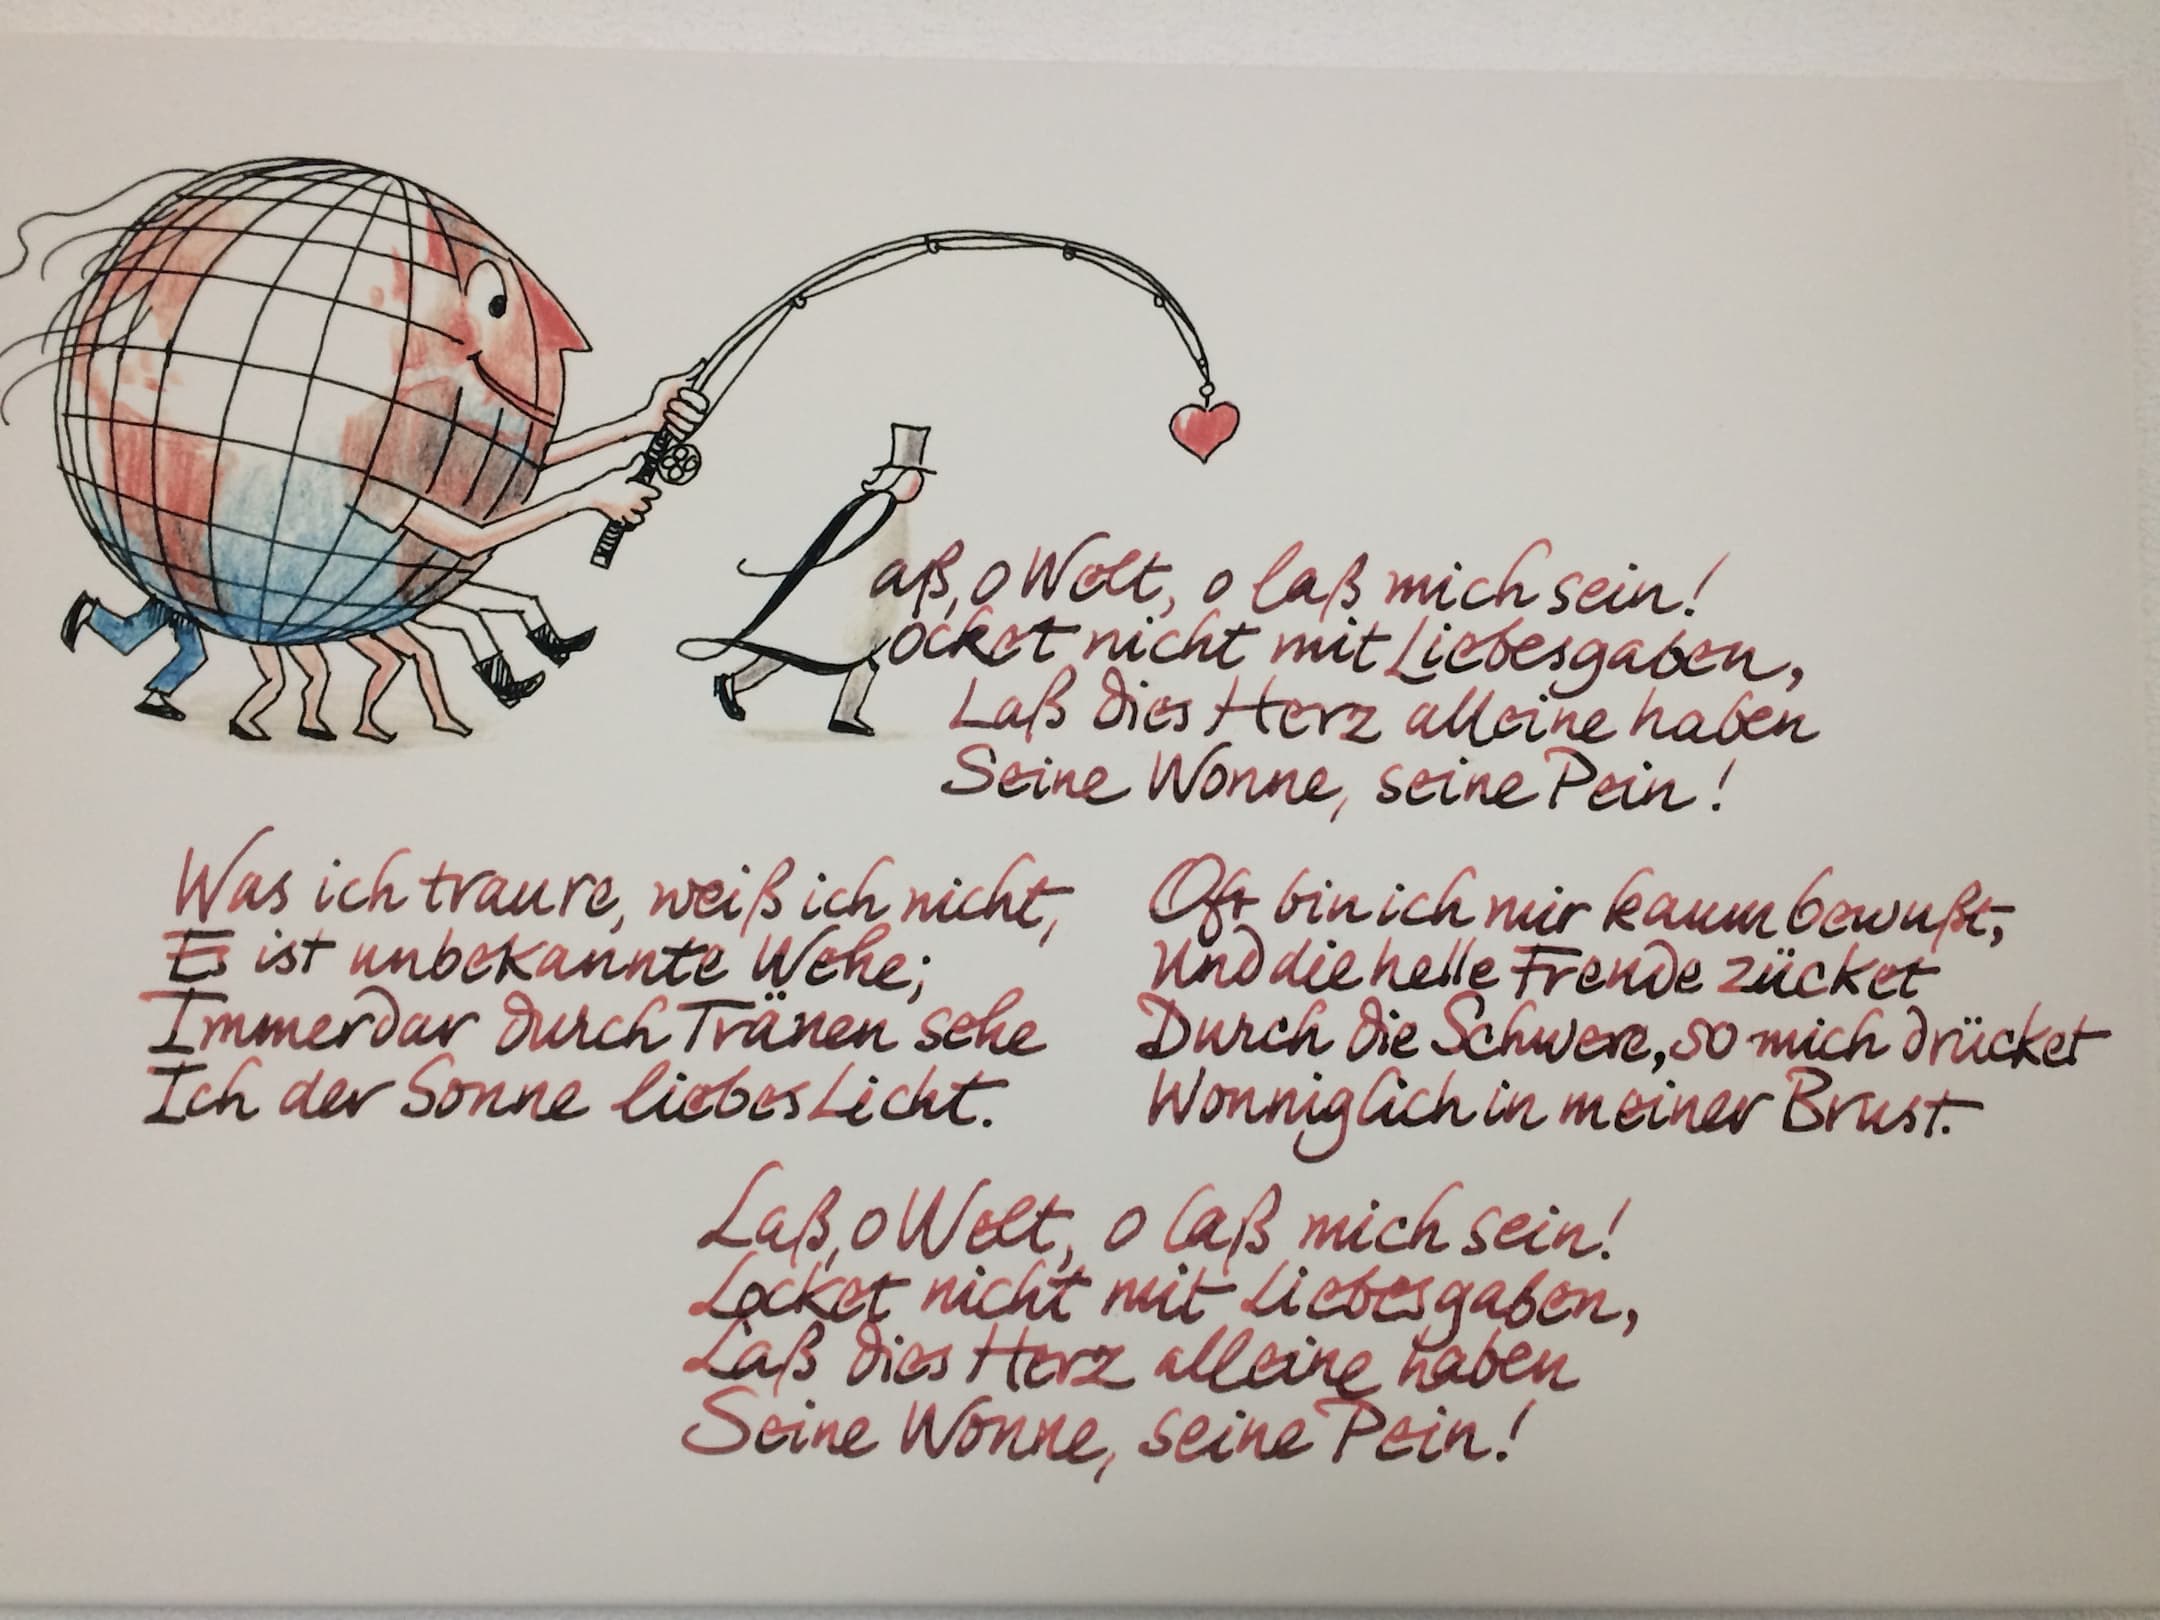 Laß, o Welt, o laß mich sein!
Locket nicht mit Liebesgaben,
Laß dies Herz alleine haben
Seine Wonne, seine Pein!
Was ich traure, weiß ich nicht,
Es ist unbekannte Wehe;
Immerdar durch Tränen sehe
Ich der Sonne liebes Licht.
Oft bin ich mir kaum bewußt,
Und die helle Freude zücket
Durch die Schwere, so mich drücket
Wonniglich in meiner Brust.
Laß, o Welt, o laß mich sein!
Locket nicht mit Liebesgaben,
Laß dies Herz alleine haben
Seine Wonne, seine Pein!